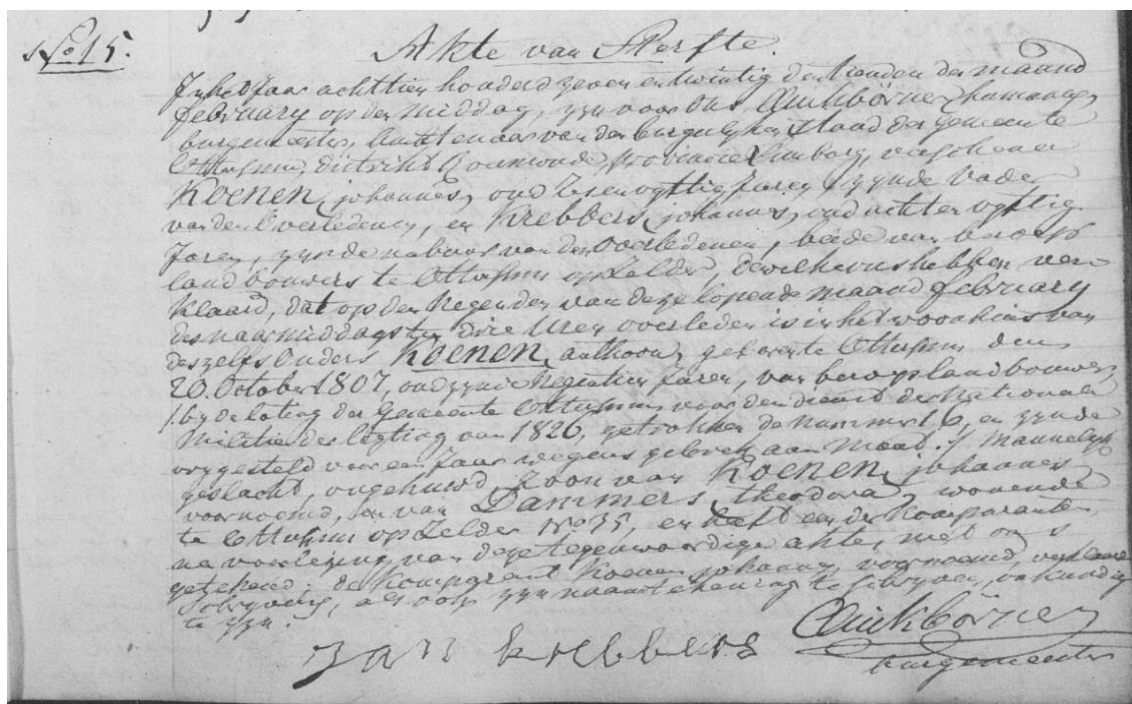 No 15.
Akte van Sterfte.
In het Jaar achttien honderd zeven en twintig den tienden der maand
february op den middag, zyn voor ons
burgemeester, Amtenaar van den burgerlyken stand der gemeente
Ottersum, district Roermonde, provincie Limborg, verschenen
Koenen, johannes, oud Jaren, zynde vader
van den Overledenen, en Krebbers, johannes, oud acht en vyftig
Jaren, zynde nabuur van den Overledenen, beide van beroep
landbouwers te Ottersum op Zelder, dewelke ons hebben ver-
klaard, dat op den Negenden van deze lopende maand february
des naarmiddags ten drie Uren overleden is in het woonhuis van
deszelfs Ouders Koenen, anthoon, geboren te Ottersum den
20. October 1807, oud zynde Negentien Jaren, van beroep landbouwer,
/. by de loting der Gemeente Ottersum voor den dienst der Nationale
Militie der ligting van 1826, getrokken de nummer 16, en zynde
vrygesteld voor een Jaar wegens gebrek aan Maad ./ Mannelyk
geslacht, ongehuwd, Zoon van Koenen, johannes
voornoemd, en van Dammers, theodora, wonende
te Ottersum op Zelder No 75, en heeft een der Komparanten,
na voorlezing van deze tegenwoordige akte, met ons
getekend; de Komparant Koenen, johannes, voornoemd, verklaard
schryvens, als ook zyn naamtekening te schryven, onkundig
te zyn.
Jan krebbers
burgemeester